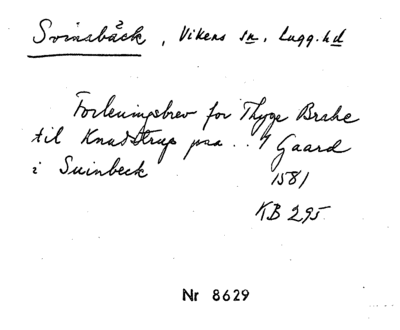 Svinabäck, Vikens sn, Lugg. hd
Forleningsbrev for Thyge Brahe
til Knudstrup paa .. 1 Gaard
i Suinbeck
1581
KB 295.
Nr 8629